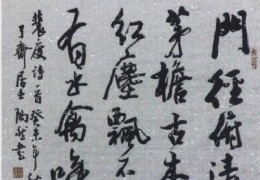 門徑俯清
茅檐古木
紅塵飄不
有水禽啼
裴度詩一首癸未年秋
齋居士